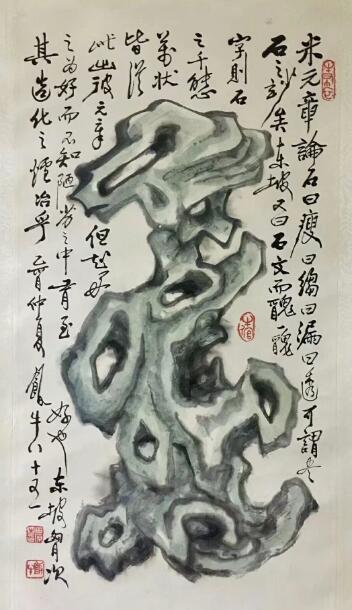 米元章論石曰瘦曰縐曰漏曰透可謂尽
石之妙矣東坡又曰石文而醜一醜
字則石
之千態
萬狀
皆從
此出彼元章但知好
之為好而不知陋劣之中有至
好也東坡胸次
其造化之爐冶乎乙酉仲夏牛八十又一